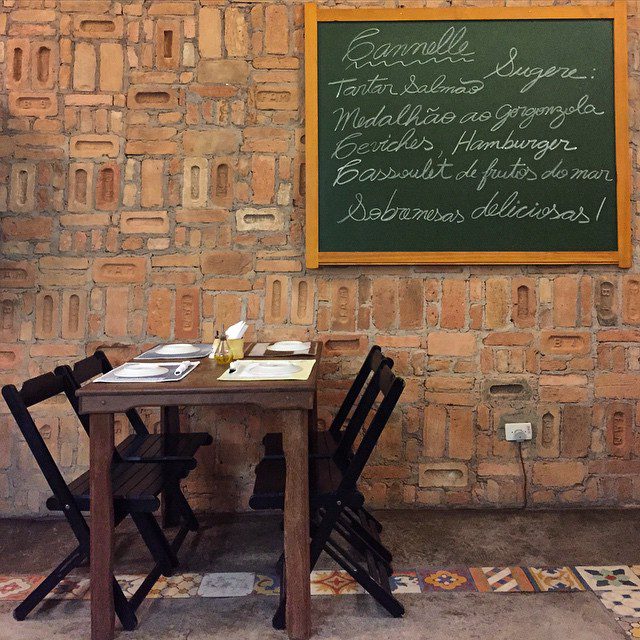 Cannelle
Sugere:
Tartar Salmão
Medalhão ao gorgonzola
Ceviches, Hamburger
Cassoulet de frutos do mar
Sobremesas deliciosas!